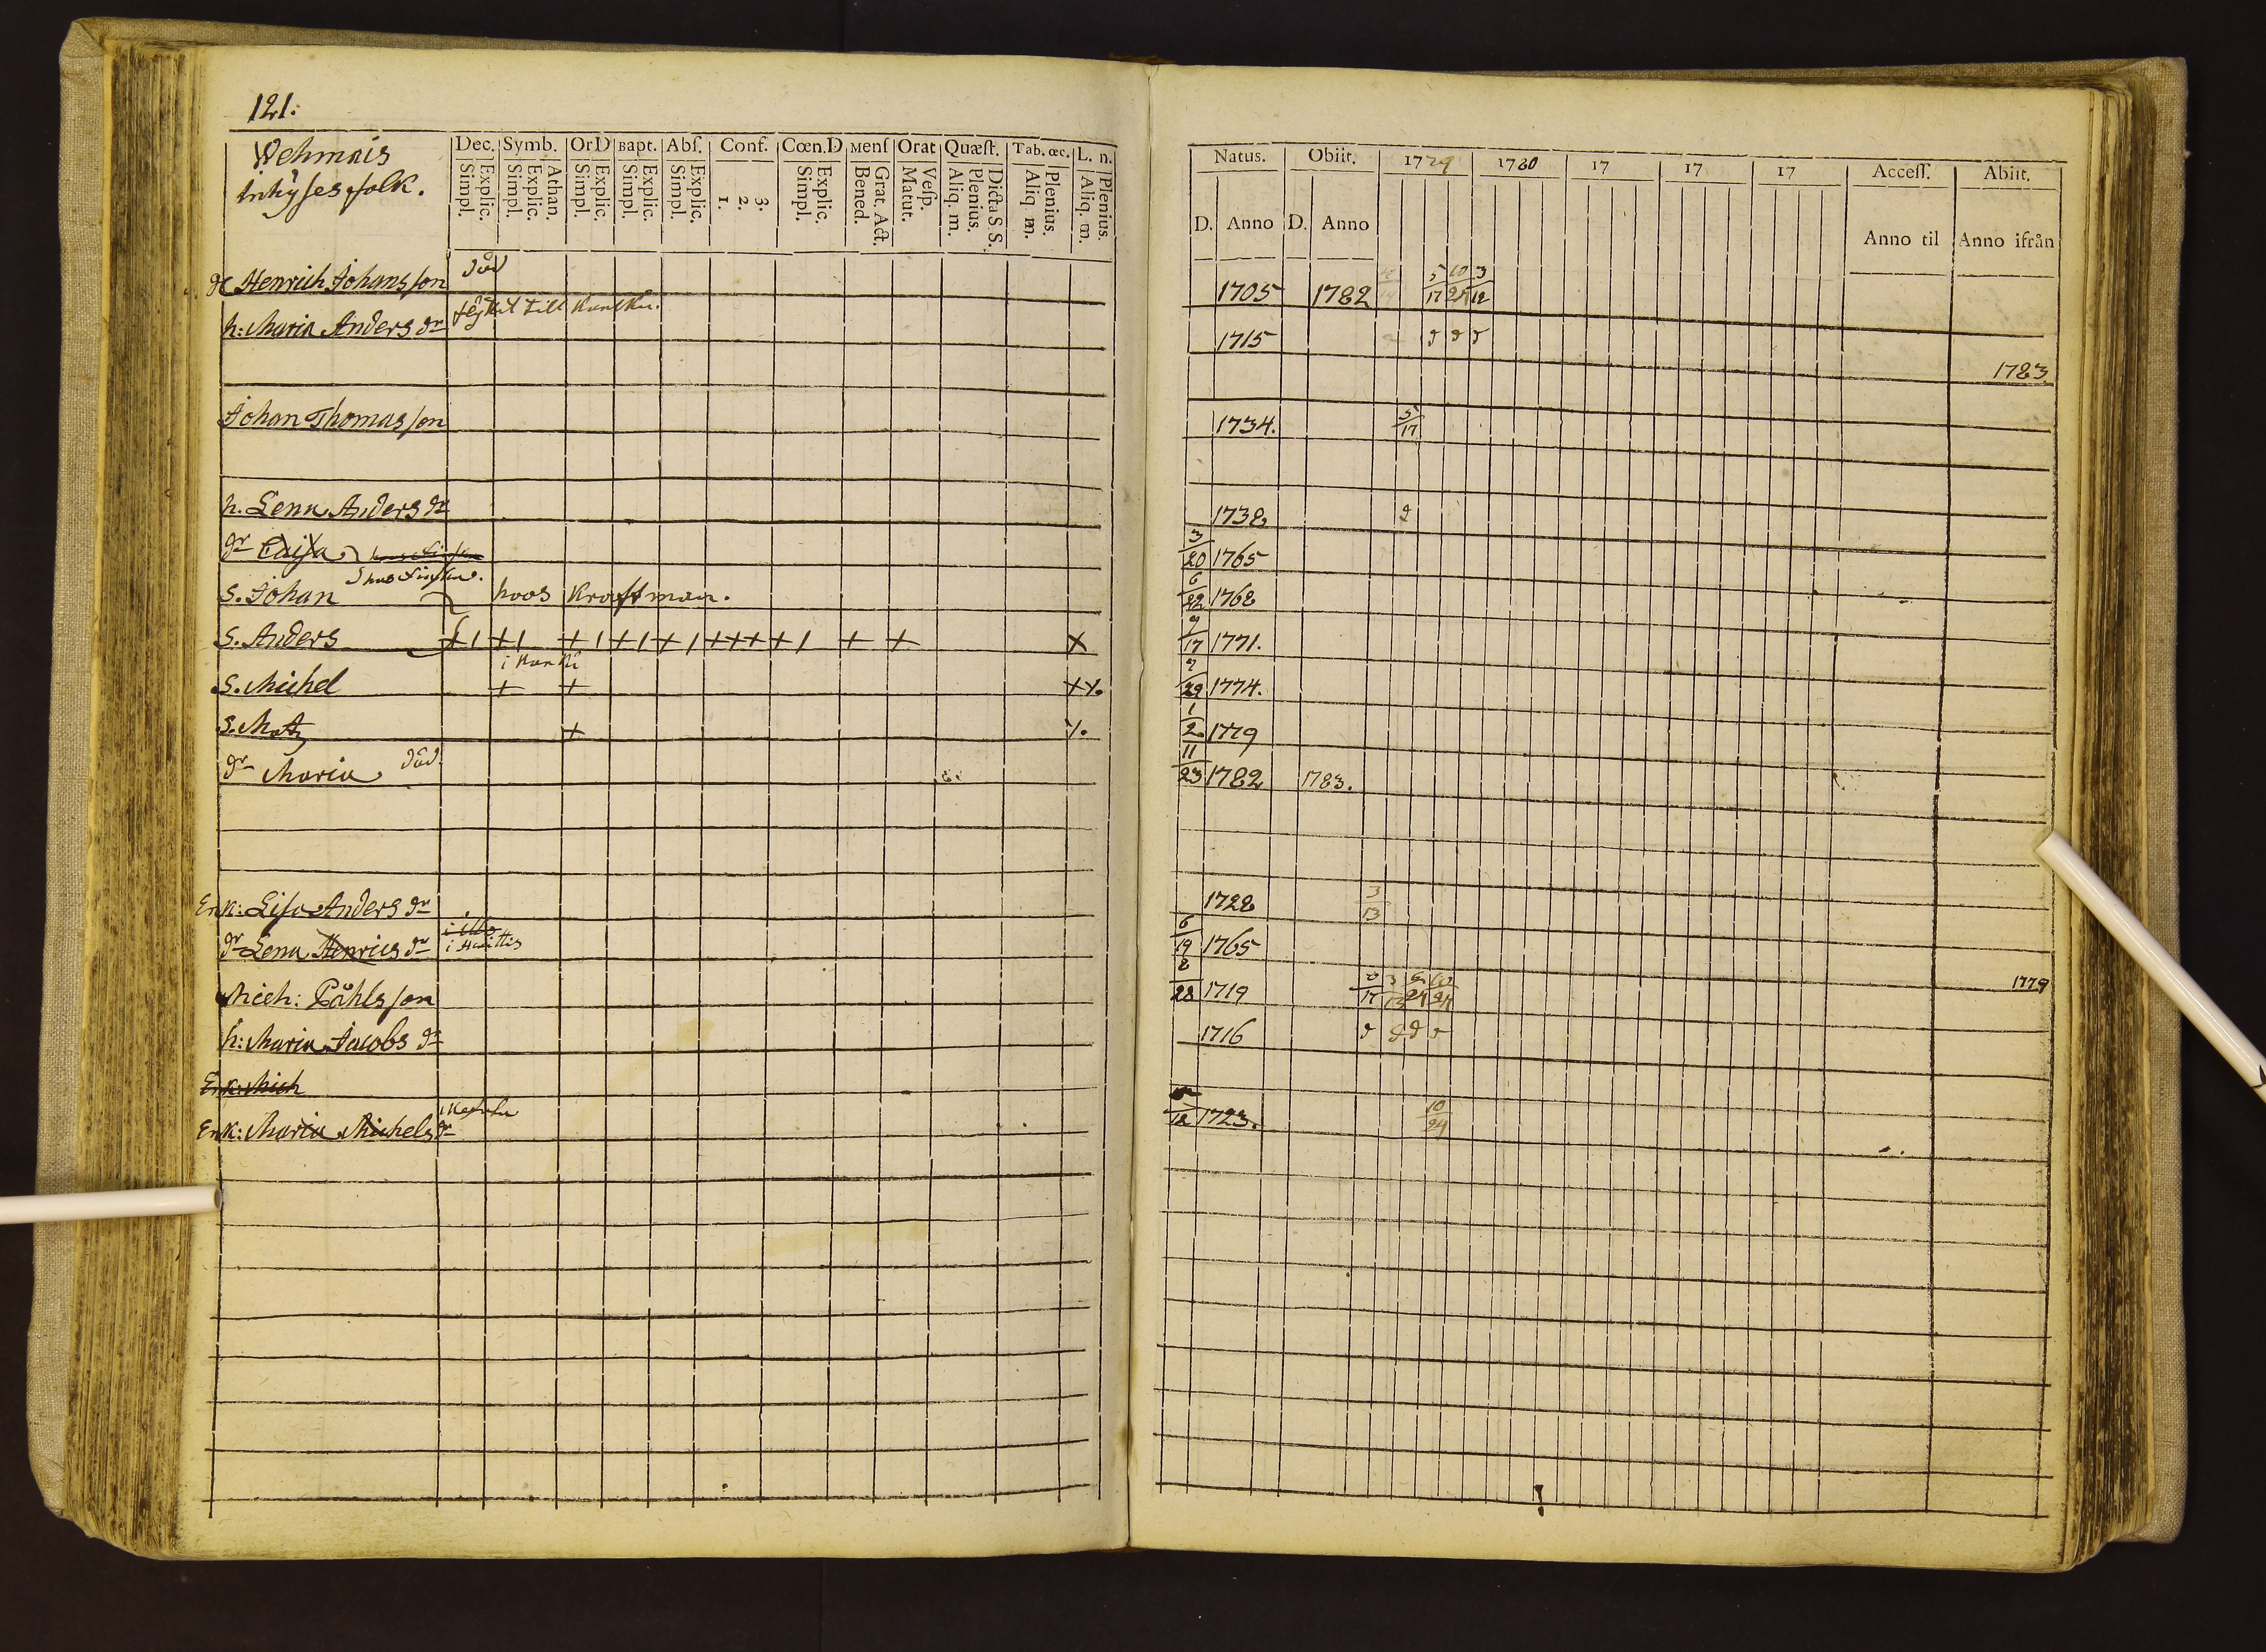 121.
Wehmais
inhyses folk.
Dec. Symb. OrD Bapt. Abſ. Conf. Cœn.D Menſ Orat Quæſt. Tab. œc. L. n.
Explic. Simpl. Athan. Explic. Simpl. Explic. Simpl. Explic. Simpl. Explic. Simpl. 3. 2. 1. Explic. Simpl. Grat. Act. Bened. Veſp. Matut. Dicta S.S. Plenius. Aliq. m. Plenius. Aliq. m. Plenius. Aliq. m.
Henrich Johansson död
h: Maria Anders dr till
Johan Thomasson
h. Lena Anders dr
dr Caisa
S. Johan hoos Kraftman.
S. Anders + 1 + 1 + 1 + 1 + 1 + + + + 1 + + x
S. Michel + + + x.
S. Matz + x.
dr Maria död.
Enk: Lisa Anders dr
dr Lena Henrics dr i Huittis
Mich: Påhlsson
h: Maria Jacobs dr
Enk: Mich
Enk: Maria Michels dr
Natus. Obiit. 1779 1780 17 17 17 Acceſſ. Abiit.
D. Anno D. Anno Anno til Anno ifrån
1705 1782 5/17 10/24 3/12
1715
1783.
1734. 5/17
1738
3/20 1765
6/22 1768
9/17 1771.
7/29 1774.
1/2 1779
11/23 1782 1783.
1728 3/13
6/19 1765
8/28 1719 1779
1716
12 1723. 10/24